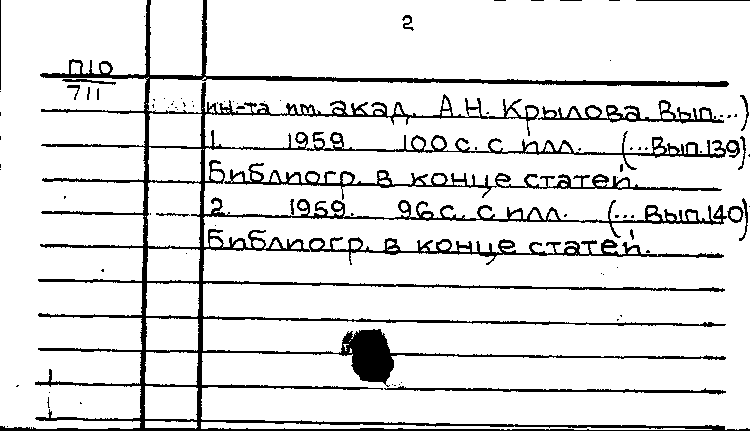 2
П10
711
ин-та им. акад. А.Н. Крылова. Вып...)
1. 1959. 100 с. с илл. (...Вып.139).
Библиогр. в конце статей.
2. 1959. 96 с. с илл. (... Вып.140)
Библиогр. в конце статей.